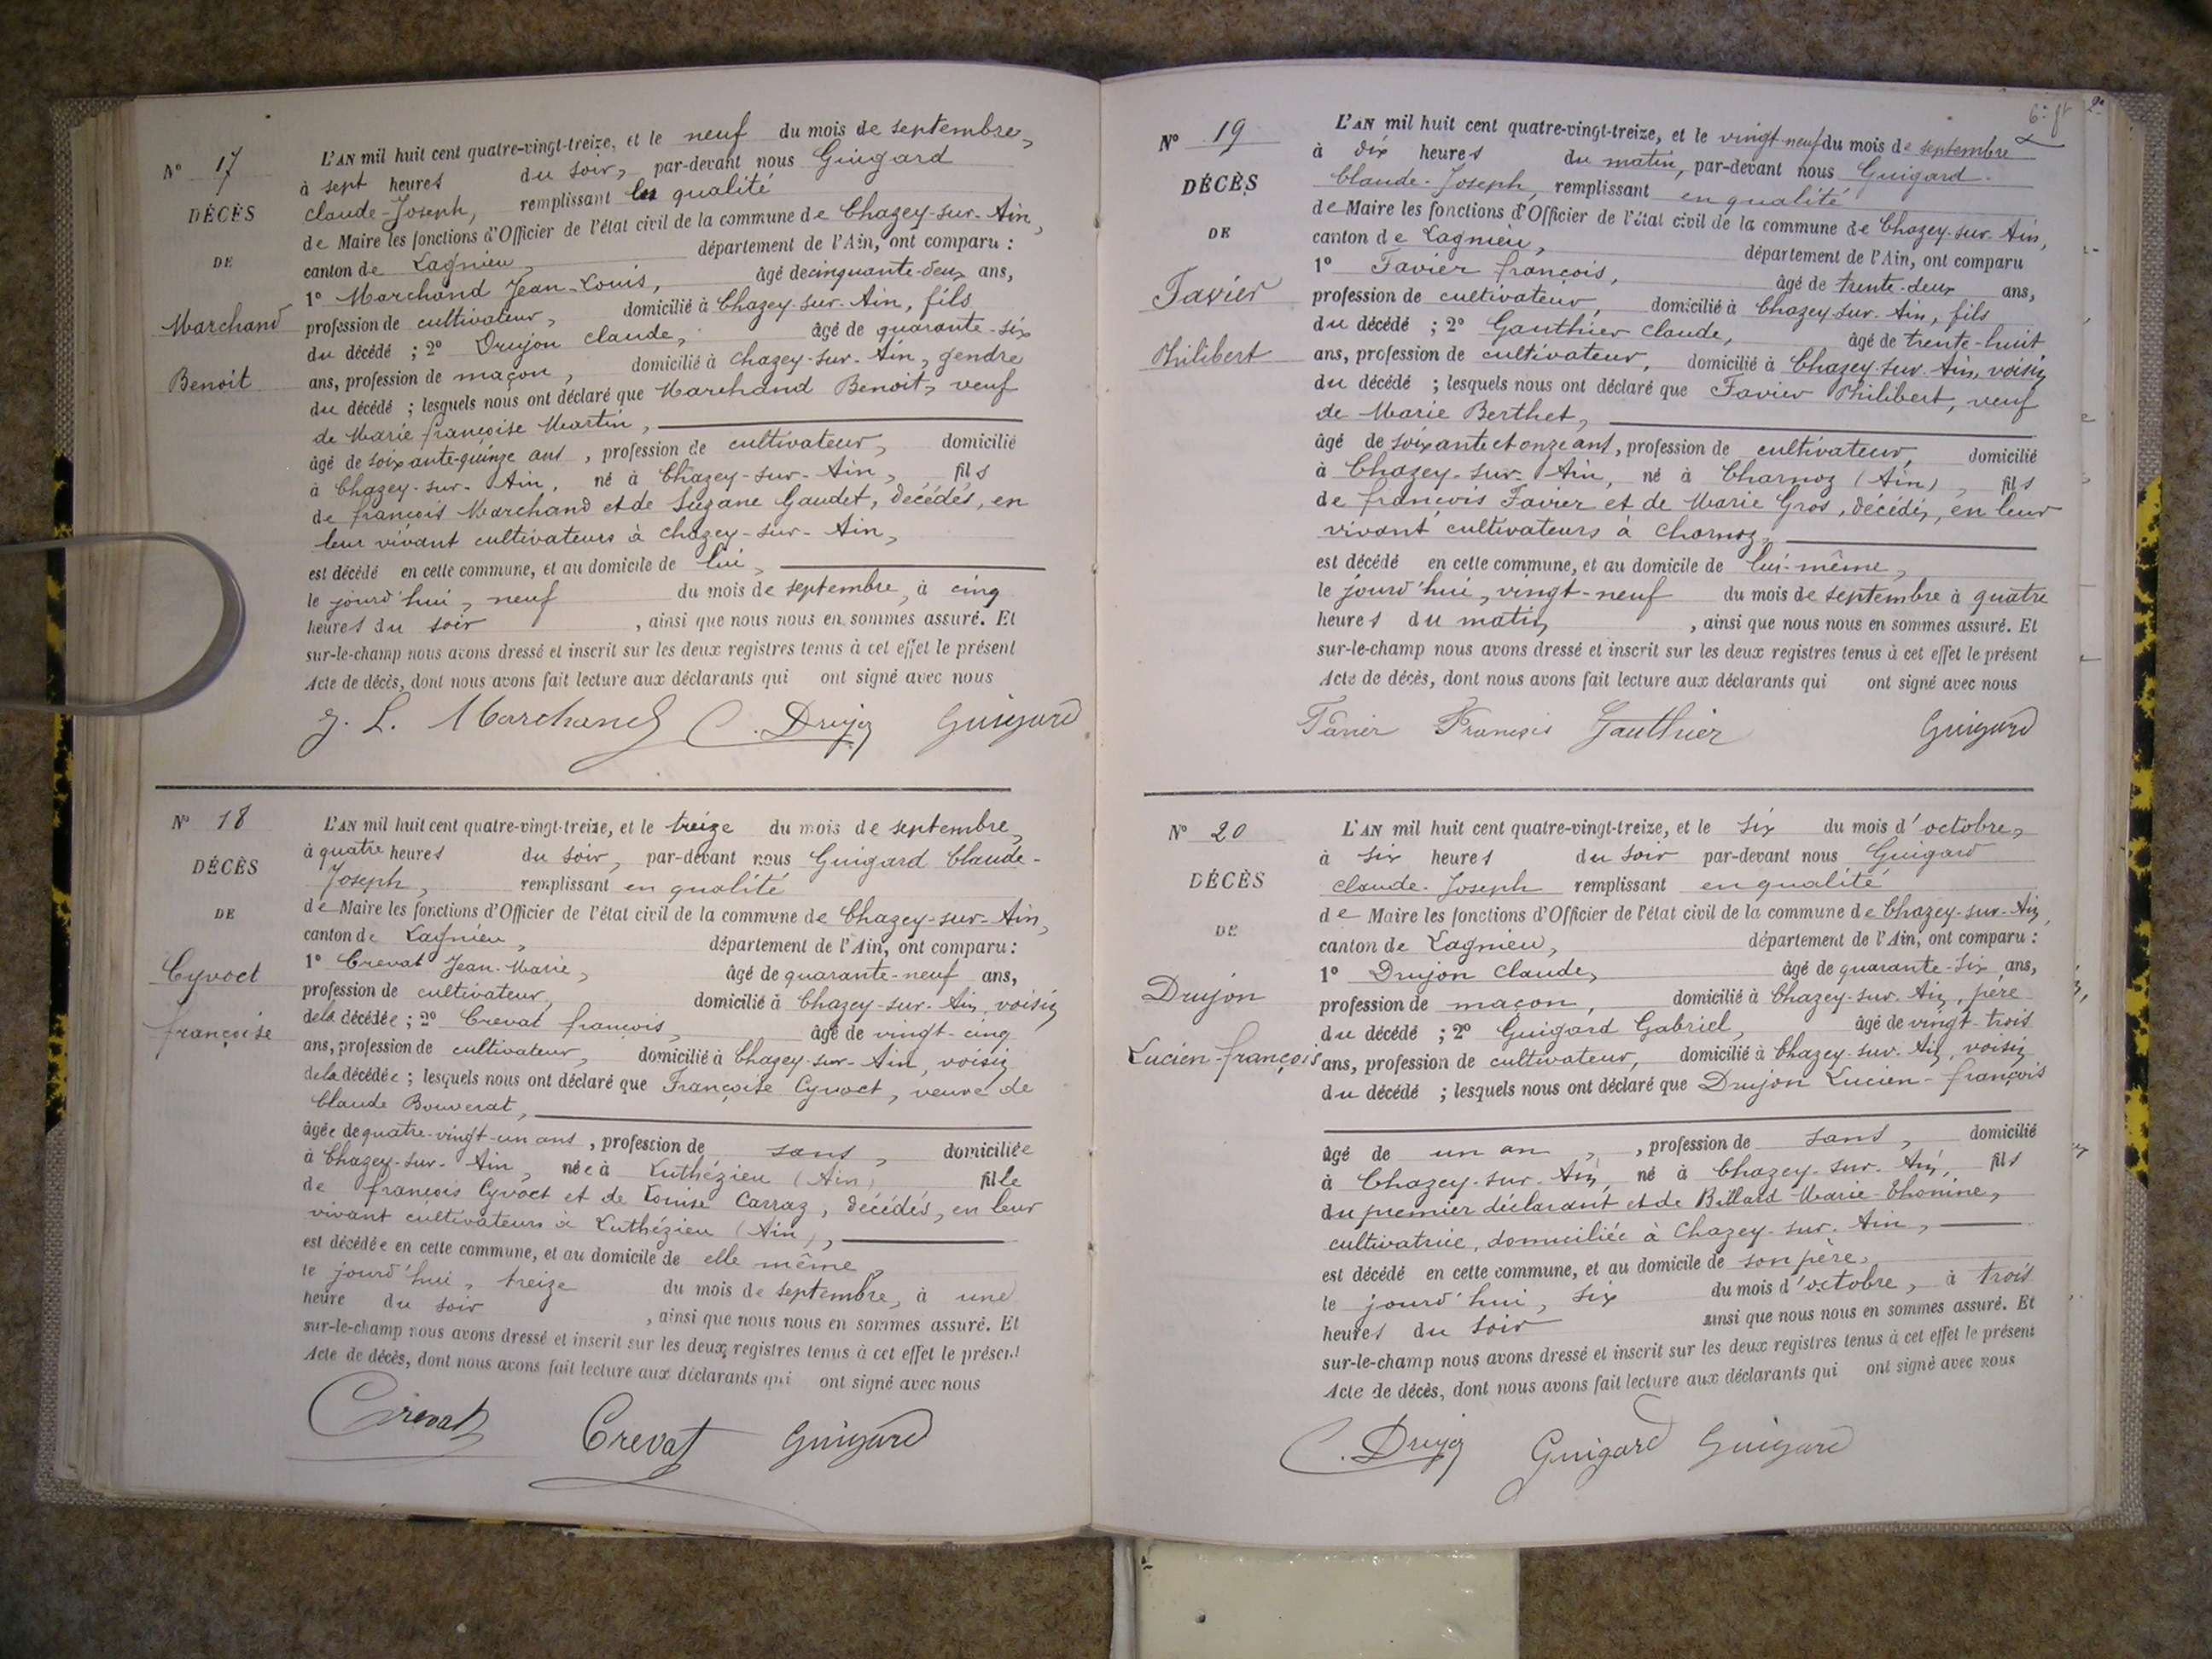 N° 17
DÉCÈS
DE
Marchand
Benoit
L'AN mil huit cent quatre-vingt-treize, et le neuf du mois de septembre,
à sept heures du soir, par-devant nous Guigard
Claude-Joseph, remplissant en qualité
de Maire les fonctions d'Officier de l'état civil de la commune de Chazey-sur-Ain,
canton de Lagnieu, département de l'Ain, ont comparu :
1° Marchand Jean-Louis, âgé de cinquante-deux ans,
profession de cultivateur, domicilié à Chazey-sur-Ain, fils
du décédé ; 2° Drujon Claude, âgé de quarante-six
ans, profession de maçon, domicilié à Chazey-sur-Ain, gendre
du décédé ; lesquels nous ont déclaré que Marchand Benoit, veuf
de Marie Françoise Martin,
âgé de soixante-quinze ans, profession de cultivateur, domicilié
à Chazey-sur-Ain, né à Chazey-sur-Ain, fils
de François Marchand et de Suzane Gaudet, décédés, en
leur vivant cultivateurs à Chazey-sur-Ain,
est décédé en cette commune, et au domicile de lui,
le jourd'hui, neuf du mois de septembre, à cinq
heures du soir, ainsi que nous nous en sommes assuré. Et
sur-le-champ nous avons dressé et inscrit sur les deux registres tenus à cet effet le présent
Acte de décès, dont nous avons fait lecture aux déclarants qui ont signé avec nous
J. L. Marchand C. Drujon Guigard
N° 18
DÉCÈS
DE
Cyvoct
Françoise
L'AN mil huit cent quatre-vingt-treize, et le treize du mois de septembre,
à quatre heures du soir, par-devant nous Guigard Claude-
Joseph, remplissant en qualité
de Maire les fonctions d'Officier de l'état civil de la commune de Chazey-sur-Ain,
canton de Lagnieu, département de l'Ain, ont comparu :
1° Crevat Jean-Marie, âgé de quarante-neuf ans,
profession de cultivateur, domicilié à Chazey-sur-Ain, voisin
de la décédée ; 2° Crevat François, âgé de vingt-cinq
ans, profession de cultivateur, domicilié à Chazey-sur-Ain, voisin
de la décédée ; lesquels nous ont déclaré que Françoise Cyvoct, veuve de
Claude Bouverat,
âgée de quatre-vingt-un ans, profession de sans, domiciliée
à Chazey-sur-Ain, née à Luthézieu (Ain) fille
de François Cyvoct et de Louise Carraz, décédés, en leur
vivant cultivateurs à Luthézieu (Ain),
est décédée en cette commune, et au domicile de elle même,
le jourd'hui, treize du mois de septembre, à une
heure du soir, ainsi que nous nous en sommes assuré. Et
sur-le-champ nous avons dressé et inscrit sur les deux registres tenus à cet effet le présent
Acte de décès, dont nous avons fait lecture aux déclarants qui ont signé avec nous
Crevat Crevat Guigard
N° 19
DÉCÈS
DE
Favier
Philibert
L'AN mil huit cent quatre-vingt-treize, et le vingt-neuf du mois de septembre
à dix heures du matin, par-devant nous Guigard
Claude-Joseph, remplissant en qualité
de Maire les fonctions d'Officier de l'état civil de la commune de Chazey-sur-Ain,
canton de Lagnieu, département de l'Ain, ont comparu
1° Favier François, âgé de trente-deux ans,
profession de cultivateur, domicilié à Chazey-sur-Ain, fils
du décédé ; 2° Gauthier Claude, âgé de trente-huit
ans, profession de cultivateur, domicilié à Chazey-sur-Ain, voisin
du décédé ; lesquels nous ont déclaré que Favier Philibert, veuf
de Marie Berthet,
âgé de soixante et onze ans, profession de cultivateur, domicilié
à Chazey-sur-Ain, né à Charnoz (Ain), fils
de François Favier et de Marie Gros, décédés, en leur
vivant cultivateurs à Charnoz,
est décédé en cette commune, et au domicile de lui-même,
le jourd'hui, vingt-neuf du mois de septembre à quatre
heures du matin, ainsi que nous nous en sommes assuré. Et
sur-le-champ nous avons dressé et inscrit sur les deux registres tenus à cet effet le présent
Acte de décès, dont nous avons fait lecture aux déclarants qui ont signé avec nous
Favier François Gauthier Guigard
N° 20
DÉCÈS
DE
Drujon
Lucien-François
L'AN mil huit cent quatre-vingt-treize, et le six du mois d'octobre,
à six heures du soir par-devant nous Guigard
Claude-Joseph remplissant en qualité
de Maire les fonctions d'Officier de l'état civil de la commune de Chazey-sur-Ain,
canton de Lagnieu, département de l'Ain, ont comparu :
1° Drujon Claude, âgé de quarante-six ans,
profession de maçon, domicilié à Chazey-sur-Ain, père
du décédé ; 2° Guigard Gabriel, âgé de vingt-trois
ans, profession de cultivateur, domicilié à Chazey-sur-Ain, voisin
du décédé ; lesquels nous ont déclaré que Drujon Lucien-François
âgé de un an, , profession de sans, domicilié
à Chazey-sur-Ain, né à Chazey-sur-Ain, fils
du premier déclarant et de Billard Marie-Thonine,
cultivatrice, domiciliée à Chazey-sur-Ain,
est décédé en cette commune, et au domicile de son père,
le jourd'hui, six du mois d'octobre, à trois
heures du soir ainsi que nous nous en sommes assuré. Et
sur-le-champ nous avons dressé et inscrit sur les deux registres tenus à cet effet le présent
Acte de décès, dont nous avons fait lecture aux déclarants qui ont signé avec nous
C. Drujon Guigard Guigard